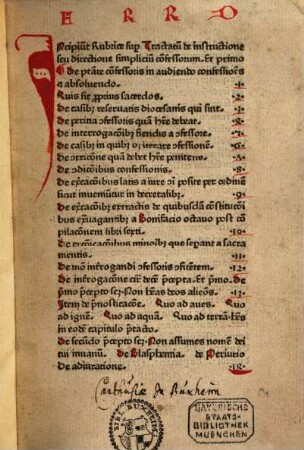 E R R O
Incipiunt Rubrice sup̄ Tractatū de instructione
seu directione simpliciū cōfessorum. Et primo
De ptāte cōfessoris in audiendo confessiōes
⁊ absoluendo. ·1·
Quis sit ꝓprius sacerdos. ·2·
De casibꝰ reseruatis diocesanis qui sint. ·
De peritia ɔfessoris quā habere debeat. ·
De interrogacōibꝰ fiendis a ɔfessore. ·
De casibꝰ in quibꝰ oꝫ iterare ɔfessionē. ·6·
De ɔtricōne quā debet hr̄e penitens. ·
De ɔdicōibus confessionis. ·8·
De excōicacōibus latis a iure ꝓut posite per ordinem
sicut inueniūtur in decretalibꝰ. ·9·
De excōicacōibꝰ extractis de quibusdā cōstitucōi
bus extrauagantibꝰ a Bonifacio octauo post cō
pilacōnem libri sexti. ·10·
De excōicacōnibus minoribꝰ que separāt a sacra
mentis. ·11·
De mō interrogandi ɔfessoris ɔfitētem. ·12·
De interrogacōne circa decē p̄cepta. Et p̄mo. De
p̄mo p̄cepto scꝫ Non habeas deos alienos. ·13·
Item de pronosticacōne. Quo ad aues. Quo
ad ignē. Quo ad aquā. Quo ad terrā. hēs
in eodē capitulo p̄tacto.
De secūdo p̄cepto scꝫ Non assumes nomē dei
tui inuanū. De Blasphemia. de Periurio
de adiuratione. ·18·
Cartusiæ in Buxheim
BAYERISCHE
STAATS-
BIBLIOTHEK
MUENCHEN